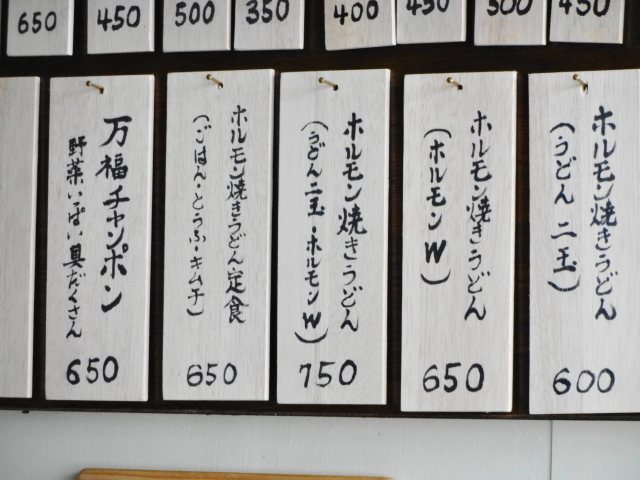 650
450
500
350
400
450
500
450
ホルモン焼きうどん
(うどん二玉)
600
ホルモン焼きうどん
(ホルモンW)
650
ホルモン焼きうどん
(うどん二玉・ホルモンW)
750
ホルモン焼きうどん定食
(ごはん・とうふ・キムチ)
650
万福チャンポン
野菜いっぱい具だくさん
650